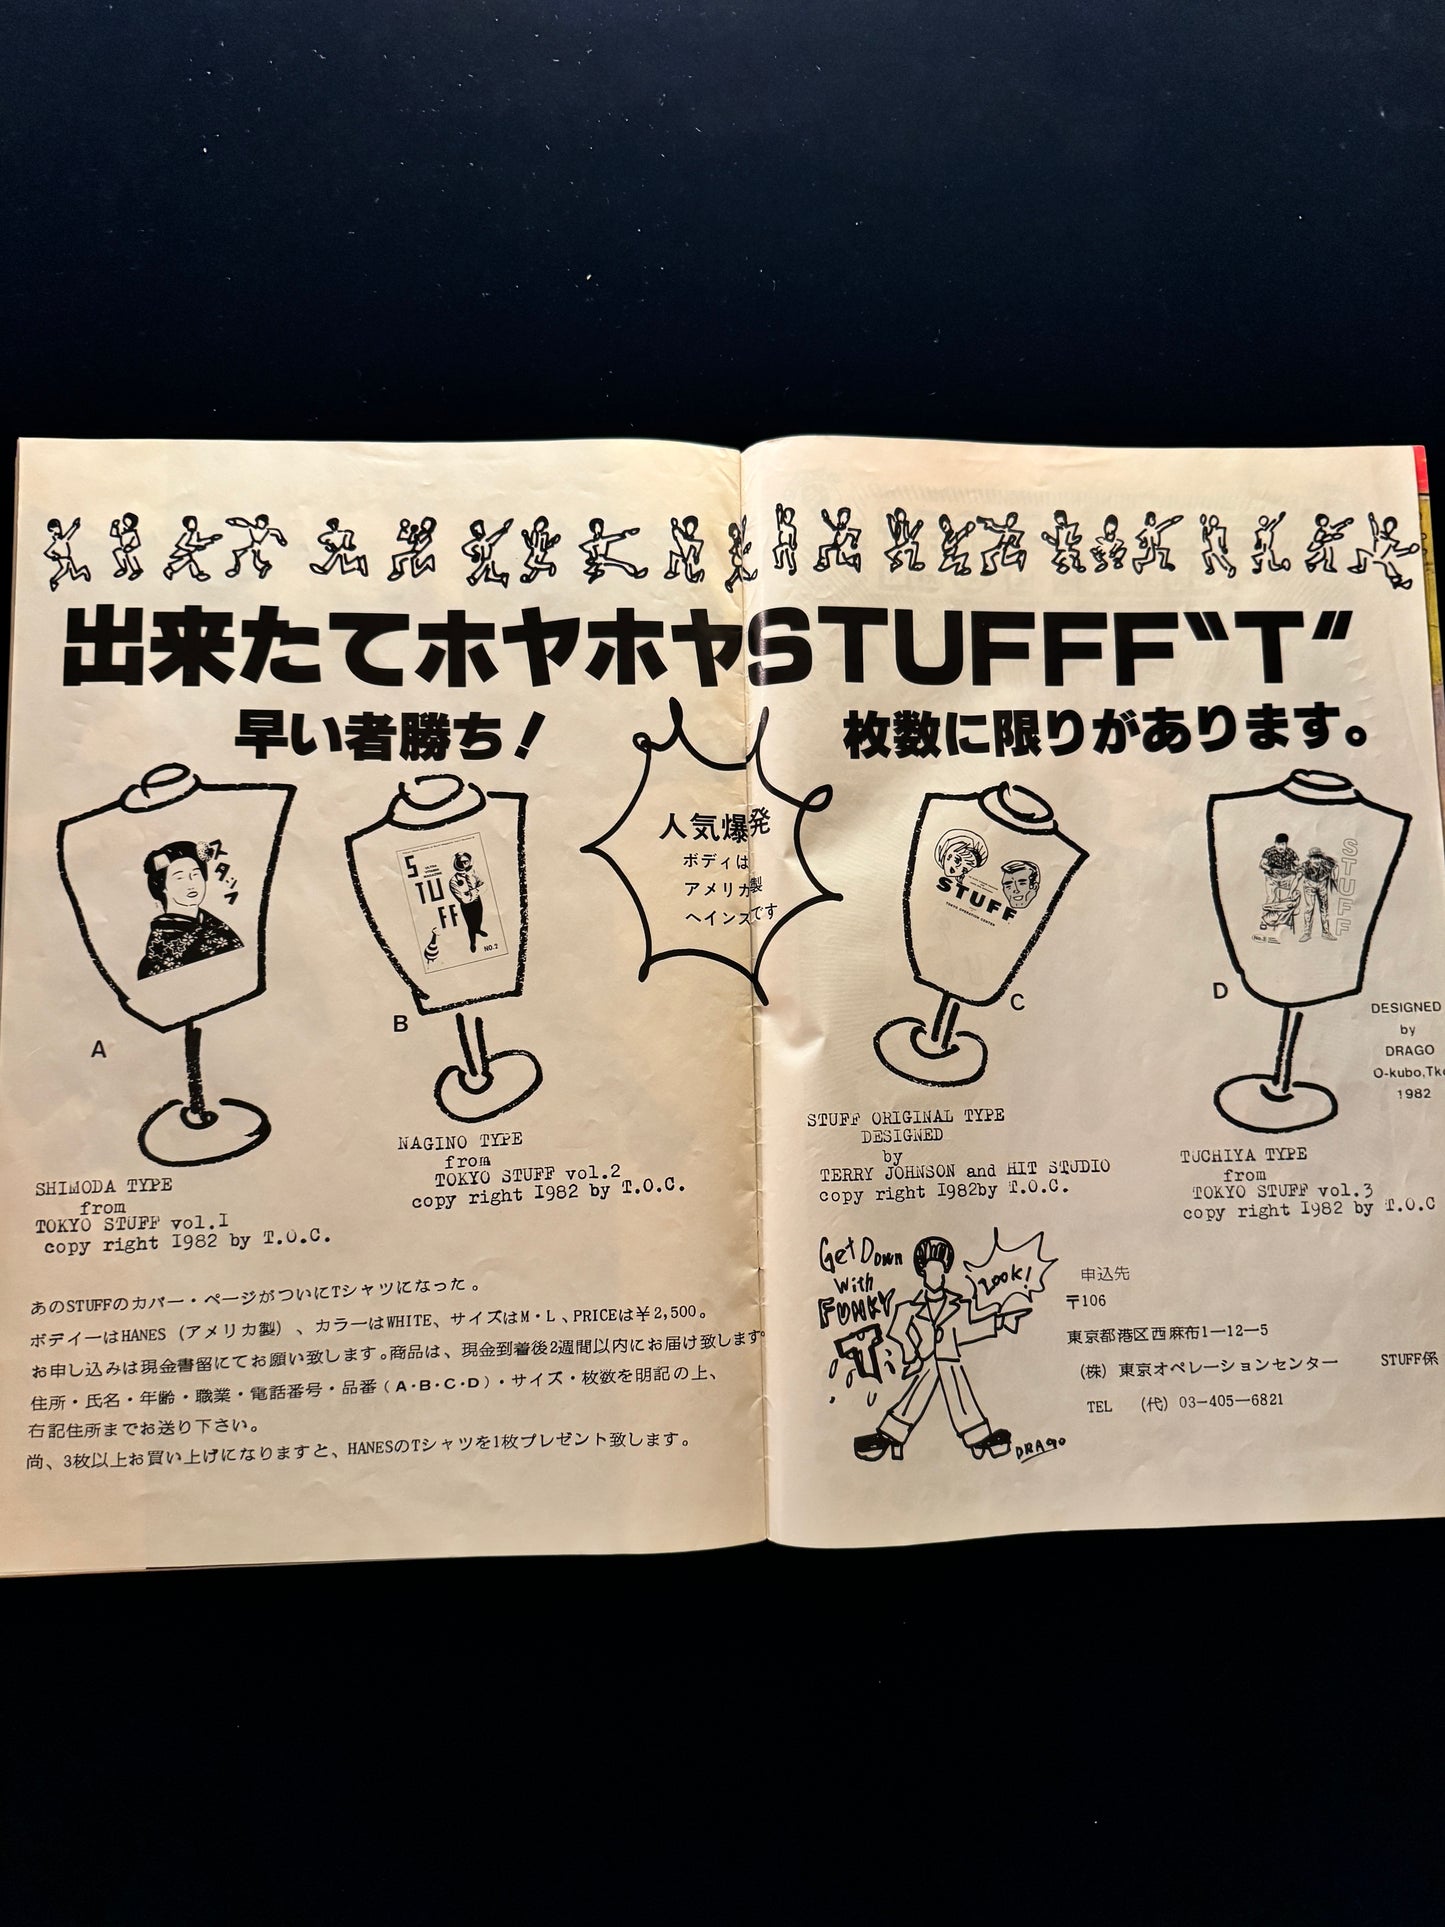 出来たてホヤホヤSTUFFF〝T〞
早い者勝ち!
枚数に限りがあります。
人気爆発
ボディは
アメリカ製
ヘインズです
スタッフ
A
STUFF
NO.2
B
STUFF
TOKYO OPERATION CENTER
C
STUFF
No.3
D
DESIGNED
by
DRAGO
O-kubo,Tko
1982
SHIMODA TYPE
from
TOKYO STUFF vol.I
copy right I982 by T.O.C.
NAGINO TYPE
from
TOKYO STUFF vol.2
copy right I982 by T.O.C.
STUFF ORIGINAL TYPE
DESIGNED
by
TERRY JOHNSON and HIT STUDIO
copy right I982by T.O.C.
TUCHIYA TYPE
from
TOKYO STUFF vol.3
copy right I982 by T.O.C
あのSTUFFのカバー・ページがついにTシャツになった。
ボデイーはHANES(アメリカ製)、カラーはWHITE、サイズはM・L、PRICEは¥2,500。
お申し込みは現金書留にてお願い致します。商品は、現金到着後2週間以内にお届け致します。
住所・氏名・年齢・職業・電話番号・品番(A・B・C・D)・サイズ・枚数を明記の上、
右記住所までお送り下さい。
尚、3枚以上お買い上げになりますと、HANESのTシャツを1枚プレゼント致します。
Get Down
With
FUNKY
T
LOOK!
DRAGO
申込先
〒106
東京都港区西麻布1—12—5
(株)東京オペレーションセンター STUFF係
TEL (代)03—405—6821